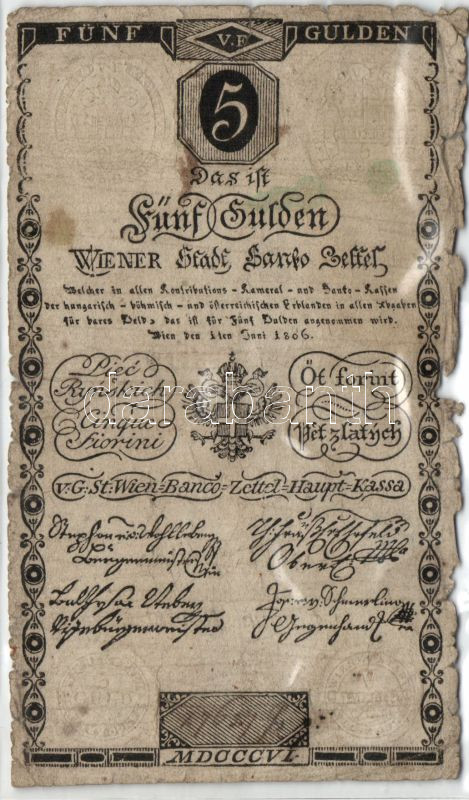 FÜNF V.F GULDEN
5
Das ist
Fünf Gulden
WIENER Stadt Banko Zettel
Welcher in allen Kontributions - Kameral - und Banko - Kassen
der hungarisch - böhmisch - und österreichischen Erblanden in allen Abgaben
für bares Geld, das ist für Fünf Gulden angenommen wird.
Wien den 1ten Juni 1806.
Pięć
Ryńskich
Cinque
Fiorini
Öt forint
Pĕt zlatych
darabanth
v. G. St. Wien-Banco-Zettel-Haupt-Kassa
Stephan
Burgermeister
Vizebürgermeister
MDCCCVI.